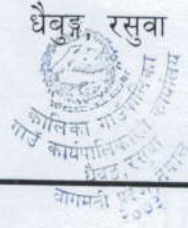 धैबुङ्ग, रसुवा
कालिका गाउँपालिका
गाउँ कार्यपालिकाको कार्यालय
धैबुङ्ग, रसुवा
बागमती प्रदेश, नेपाल
२०७३